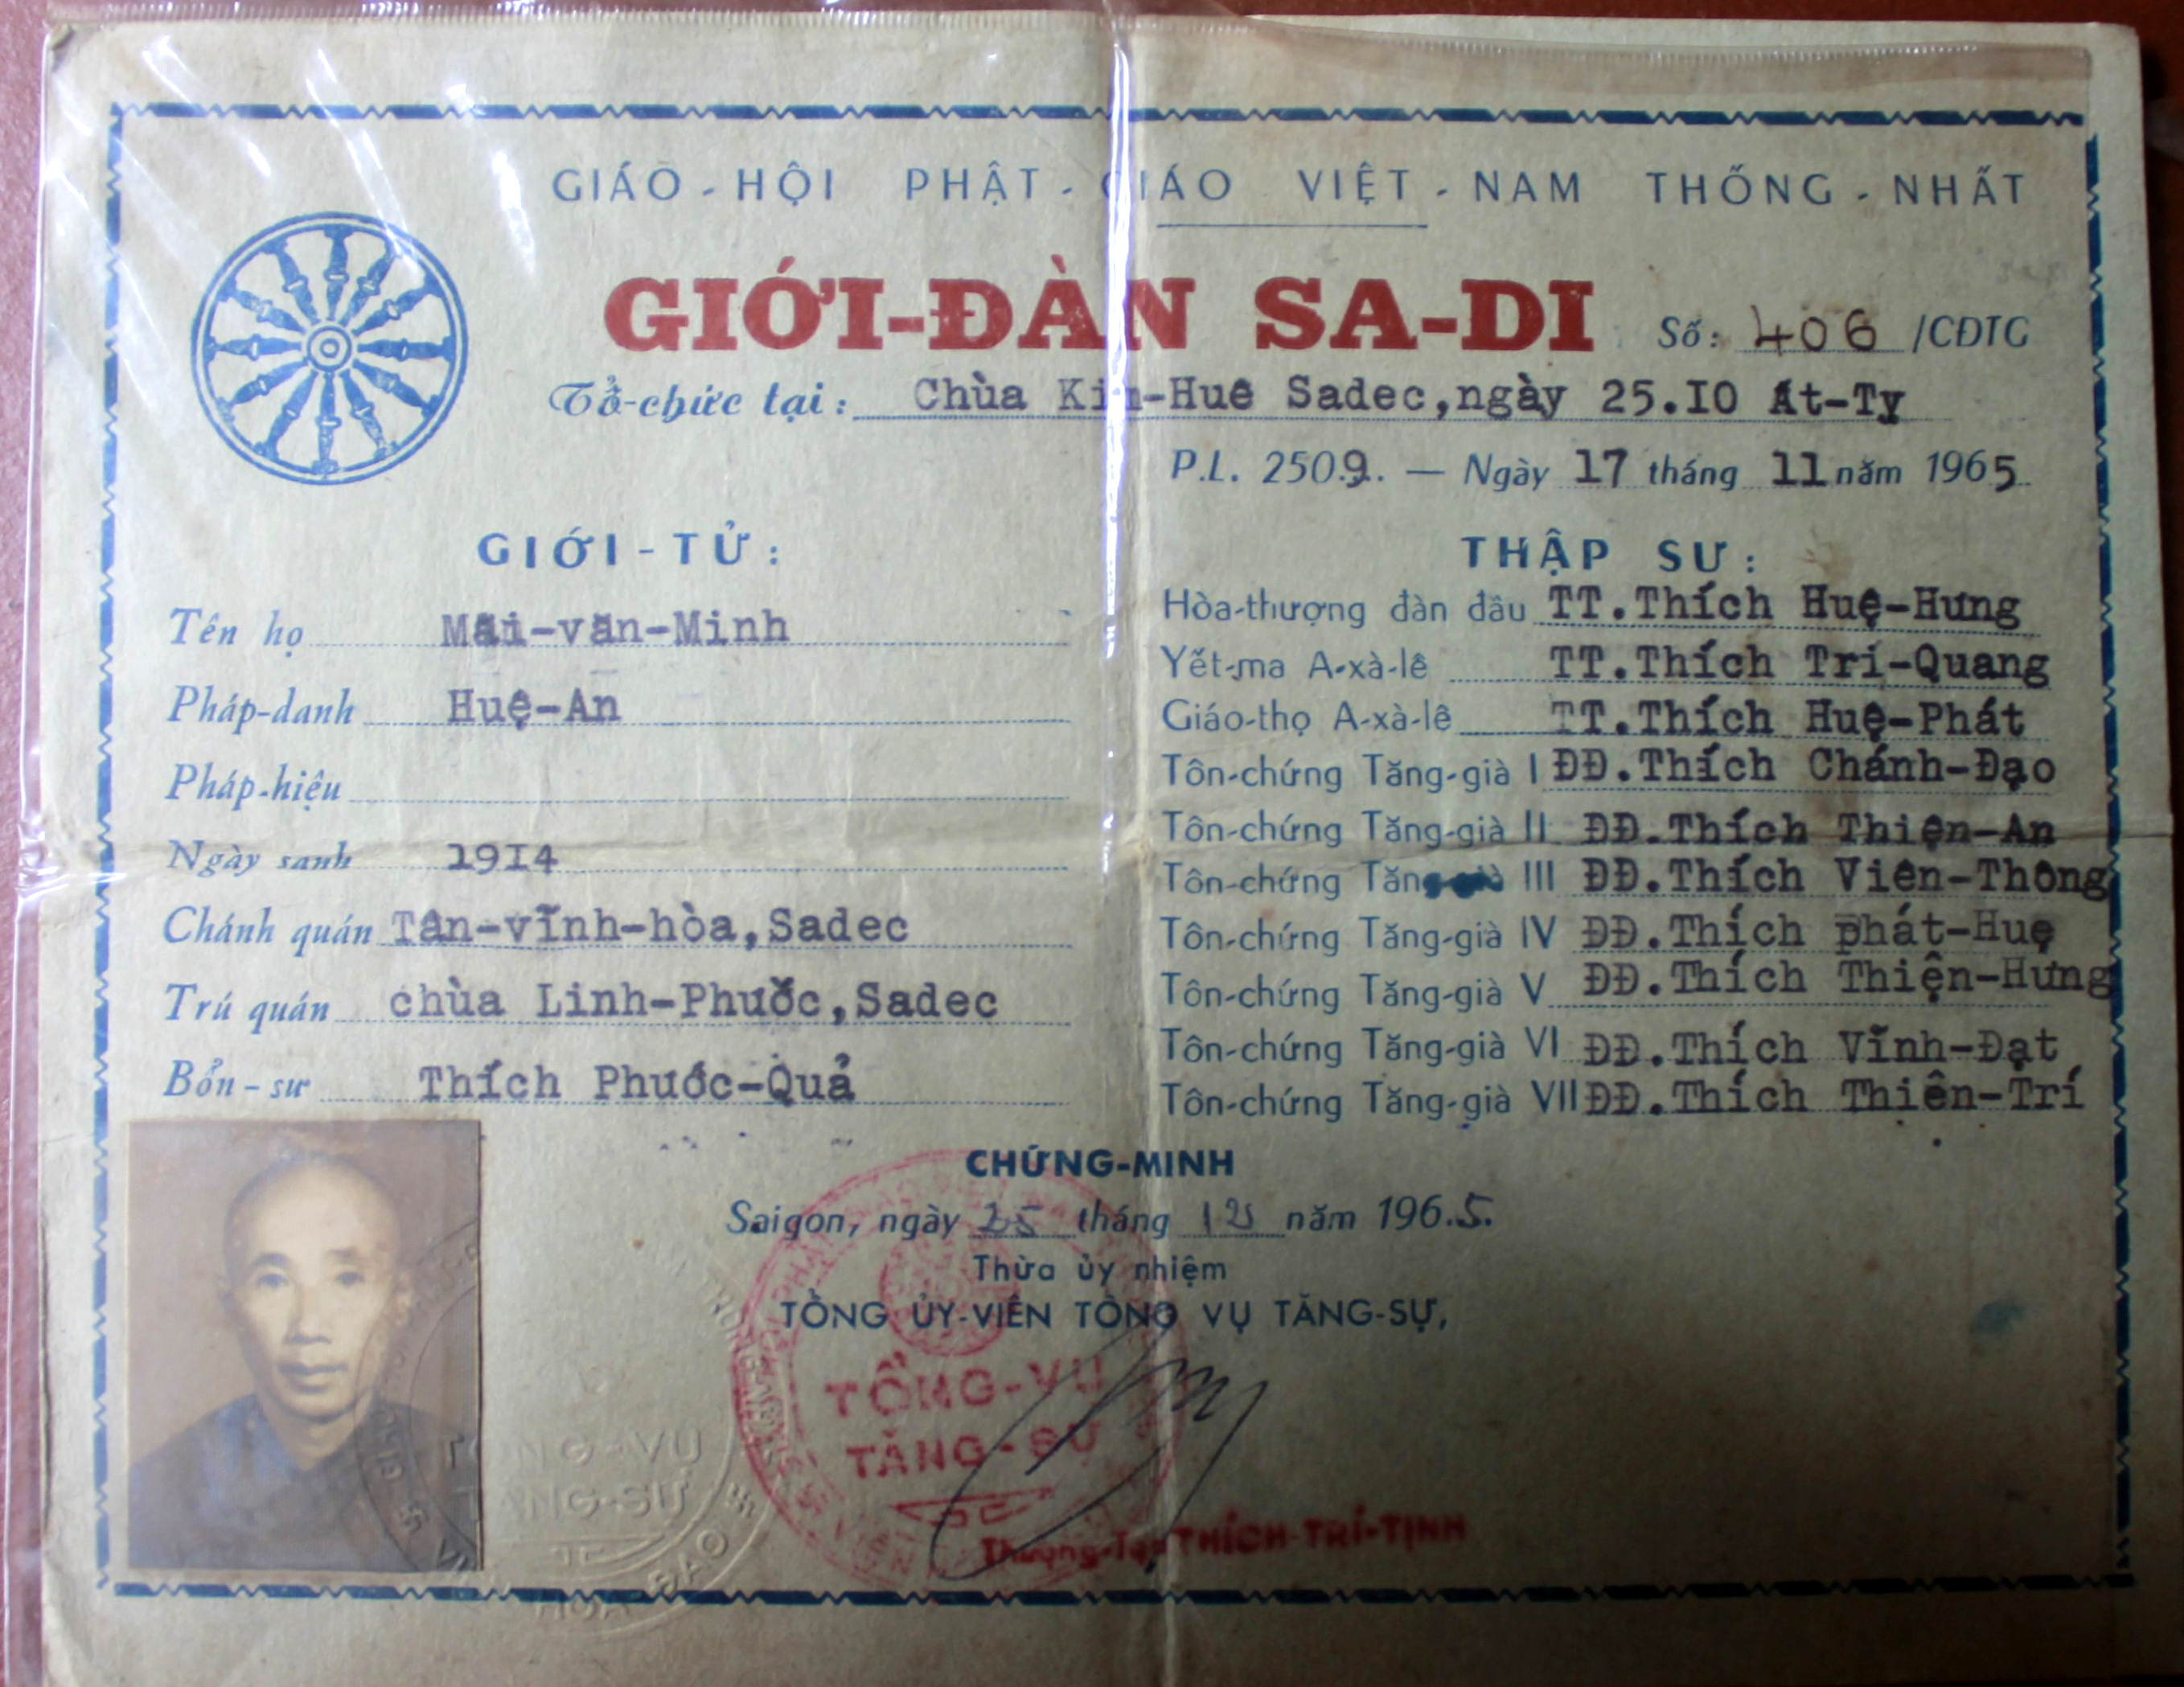 GIÁO-HỘI PHẬT-GIÁO VIỆT-NAM THỐNG-NHẤT
GIỚI-ĐÀN SA-DI Số: 406 /CĐTG
Tổ-chức tại: Chùa Kim-Huê Sadec,ngày 25.I0 Ất-Tỵ
P.L. 2509. — Ngày 17 tháng 11 năm 1965.
GIỚI-TỬ:
Tên họ Mai-văn-Minh
Pháp-danh Huệ-An
Pháp-hiệu
Ngày sanh 19I4
Chánh quán Tân-vĩnh-hòa,Sadec
Trú quán chùa Linh-Phước,Sadec
Bổn-sư Thích Phước-Quả
THẬP SƯ:
Hòa-thượng đàn đầu TT.Thích Huệ-Hưng
Yết-ma A-xà-lê TT.Thích Trí-Quang
Giáo-thọ A-xà-lê TT.Thích Huệ-Phát
Tôn-chứng Tăng-già I ĐĐ.Thích Chánh-Đạo
Tôn-chứng Tăng-già II ĐĐ.Thích Thiện-An
Tôn-chứng Tăng-già III ĐĐ.Thích Viên-Thông
Tôn-chứng Tăng-già IV ĐĐ.Thích phát-Huệ
Tôn-chứng Tăng-già V ĐĐ.Thích Thiện-Hưng
Tôn-chứng Tăng-già VI ĐĐ.Thích Vĩnh-Đạt
Tôn-chứng Tăng-già VII ĐĐ.Thích Thiên-Trí
CHỨNG-MINH
Saigon, ngày 25 tháng 12 năm 1965.
Thừa ủy nhiệm
TỔNG ỦY-VIÊN TỔNG VỤ TĂNG-SỰ,
TỔNG-VỤ
TĂNG-SỰ
Thượng-Tọa THÍCH-TRÍ-TỊNH
TỔNG-VỤ
TĂNG-SỰ